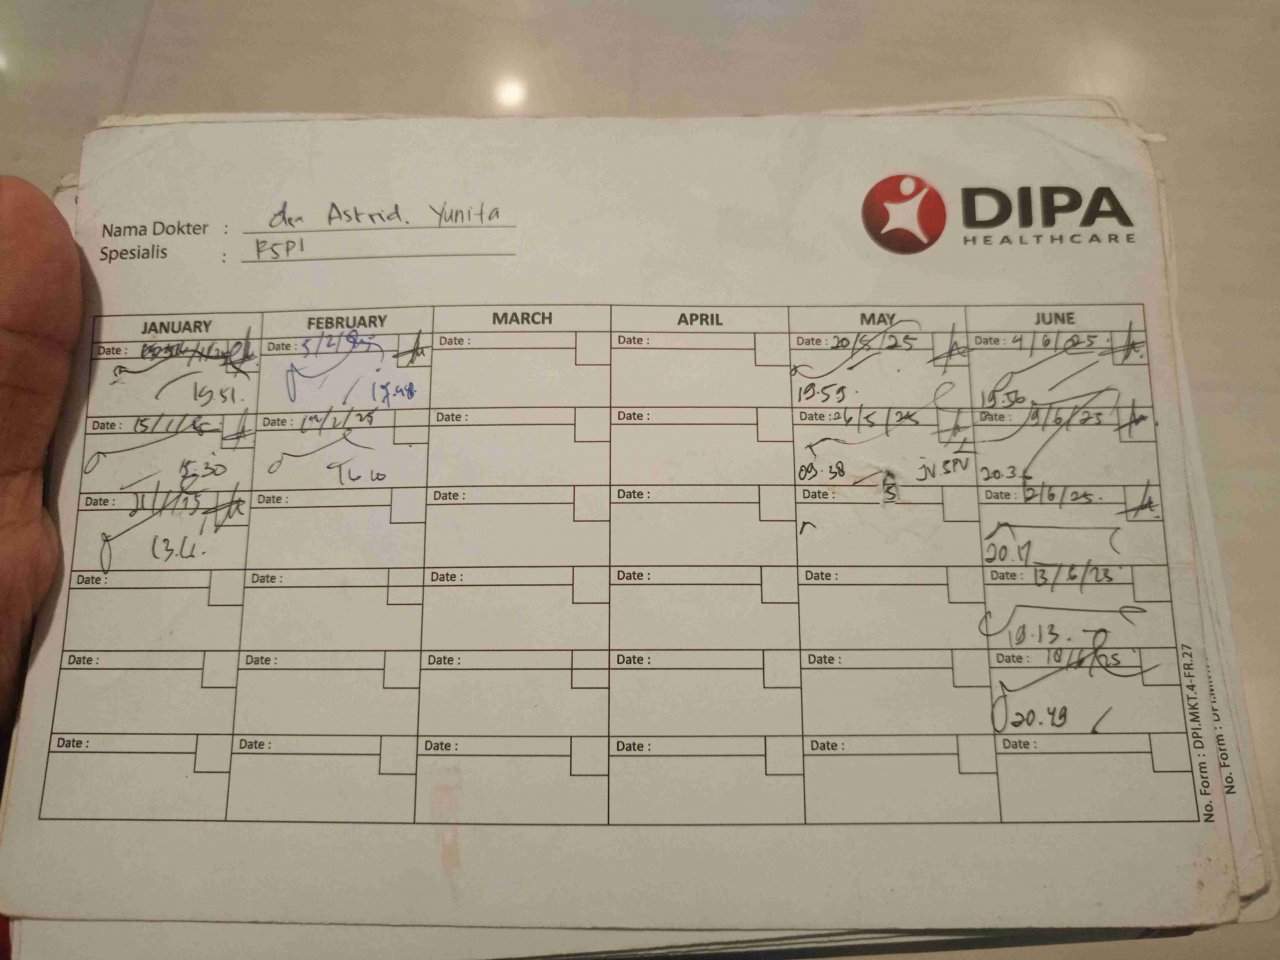 DIPA
HEALTHCARE
Nama Dokter : Astrid. Yunita
Spesialis : RSPI
JANUARY FEBRUARY MARCH APRIL MAY JUNE
Date : Date : 5/2/ Date : Date : Date : 20/5/25 Date : 4/6/25
19.51. 19.48 19.59. 19.56
Date : 15/1/ Date : /2/25 Date : Date : Date : 26/5/25 Date : 9/6/25
15.30 09.38 JV SPV 20.3
Date : 21/1/25 Date : Date : Date : Date : Date : 2/6/25.
13. 20.17
Date : Date : Date : Date : Date : Date : 13/6/25
19.13.
Date : Date : Date : Date : Date : Date : 18/6/25
20.49
Date : Date : Date : Date : Date : Date :
No. Form : DPI.MKT.4-FR.27
No. Form : DPI.